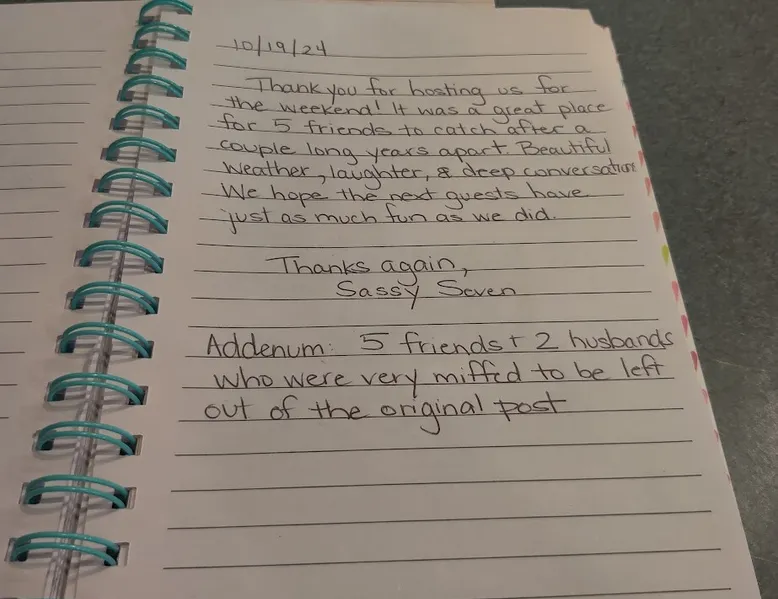 10/19/24
Thank you for hosting us for
the weekend! It was a great place
for 5 friends to catch after a
couple long years apart. Beautiful
weather, laughter, & deep conversation.
We hope the next guests have
just as much fun as we did.
Thanks again,
Sassy Seven
Addenum: 5 friends + 2 husbands
who were very miffed to be left
out of the original post